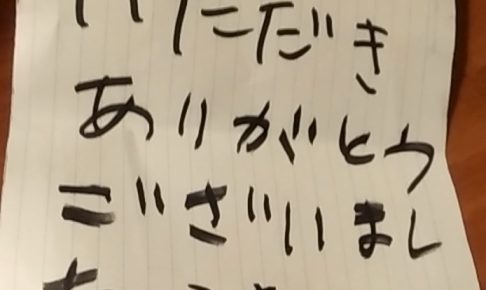 いただき
ありがとう
ございまし